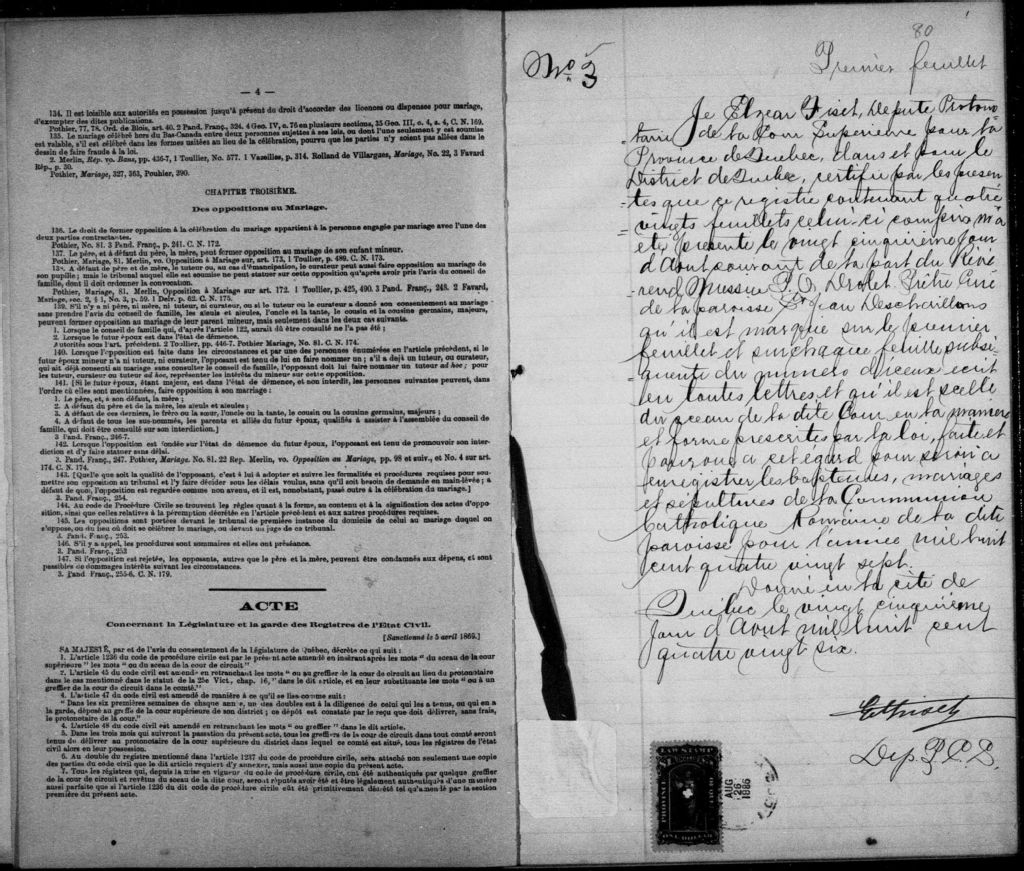 — 4 —
134. Il est loisible aux autorités en possession jusqu'à présent du droit d'accorder des licences ou dispenses pour mariage,
d'exempter des dites publications.
Pothier, 77, 78. Ord. de Blois, art. 40. 2 Pand. Franç., 324. 4 Geo. IV, c. 76 en plusieurs sections, 35 Geo. III, c. 4, s. 4, C. N. 169.
135. Le mariage célébré hors du Bas-Canada entre deux personnes sujettes à ses lois, ou dont l'une seulement y est soumise
est valable, s'il est célébré dans les formes usitées au lieu de la célébration, pourvu que les parties n'y soient pas allées dans le
dessin de faire fraude à la loi.
2. Merlin, Rép. vo. Bans, pp. 436-7, 1 Toullier, No. 577. 1 Vazeilles, p. 314. Rolland de Villargues, Mariage, No. 22, 3 Favard
Rép., p. 30.
Pothier, Mariage, 327, 363, Pouhier, 390.
CHAPITRE TROISIÈME.
Des oppositions au Mariage.
136. Le droit de former opposition à la célébration du mariage appartient à la personne engagée par mariage avec l'une des
deux parties contractantes.
Pothier, No. 81. 3 Pand. Franç., p. 241. C. N. 172.
137. Le père, et à défaut du père, la mère, peut former opposition au mariage de son enfant mineur.
Pothier, Mariage, 81. Merlin, vo. Opposition à Mariage, sur art. 173, 1 Toullier, p. 489. C. N. 173.
138. A défaut de père et de mère, le tuteur ou, au cas d'émancipation, le curateur peut aussi faire opposition au mariage de
son pupille; mais le tribunal auquel elle est soumise ne peut statuer sur cette opposition qu'après avoir pris l'avis du conseil de
famille, dont il doit ordonner la convocation.
Pothier, Mariage, 81. Merlin, Opposition à Mariage sur art. 172. 1 Toullier, p. 425, 490. 3 Pand. Franç., 248. 2 Favard,
Mariage, sec. 2, § 1, No. 3, p. 59. 1 Delv. p. 62. C. N. 175.
139. S'il n'y a ni père, ni mère, ni tuteur, ni curateur, ou si le tuteur ou le curateur a donné son consentement au mariage
sans prendre l'avis du conseil de famille, les aïeuls et aïeules, l'oncle et la tante, le cousin et la cousine germains, majeurs,
peuvent former opposition au mariage de leur parent mineur, mais seulement dans les deux cas suivants.
1. Lorsque le conseil de famille qui, d'après l'article 122, aurait dû être consulté ne l'a pas été;
2. Lorsque le futur époux est dans l'état de démence.
Autorités sous l'art. précédent. 2 Toullier, pp. 446-7. Pothier Mariage, No. 81. C. N. 174.
140. Lorsque l'opposition est faite dans les circonstances et par une des personnes énumérées en l'article précédent, si le
futur époux mineur n'a ni tuteur, ni curateur, l'opposant est tenu de lui en faire nommer un; s'il a déjà un tuteur, ou curateur,
qui ait déjà consenti au mariage sans consulter le conseil de famille, l'opposant doit lui faire nommer un tuteur ad hoc; pour
les tuteur, curateur ou tuteur ad hoc, représenter les intérêts du mineur sur cette opposition.
141. [Si le futur époux, étant majeur, est dans l'état de démence, et non interdit, les personnes suivantes peuvent, dans
l'ordre où elles sont mentionnées, faire opposition à son mariage:
1. Le père, et, à son défaut, la mère;
2. A défaut du père et de la mère, les aïeuls et aïeules;
3. A défaut de ces derniers, le frère ou la sœur, l'oncle ou la tante, le cousin ou la cousine germains, majeurs;
4. A défaut de tous les sus-nommés, les parents et alliés du futur époux, qualifiés à assister à l'assemblée du conseil de
famille, qui doit être consulté sur son interdiction.]
3 Pand. Franç., 246-7.
142. Lorsque l'opposition est fondée sur l'état de démence du futur époux, l'opposant est tenu de promouvoir son inter-
diction et d'y faire statuer sans délai.
3. Pand. Franç., 247. Pothier, Mariage. No. 81. 22 Rep. Merlin, vo. Opposition au Mariage, pp. 98 et suiv., et No. 4 sur art.
174. C. N. 174.
143. [Quelle que soit la qualité de l'opposant, c'est à lui à adopter et suivre les formalités et procédures requises pour sou-
mettre son opposition au tribunal et l'y faire décider sous les délais voulus, sans qu'il soit besoin de demande en main-levée; à
défaut de quoi, l'opposition est regardée comme non avenu, et il est, nonobstant, passé outre à la célébration du mariage.]
3. Pand. Franç., 254.
144. Au code de Procédure Civile se trouvent les règles quant à la forme, au contenu et à la signification des actes d'oppo-
sition, ainsi que celles relatives à la péremption décrétée en l'article précédent et aux autres procédures requises.
145. Les oppositions sont portées devant le tribunal de première instance du domicile de celui au mariage duquel on
s'oppose, ou du lieu où doit se célébrer le mariage, ou devant un juge de ce tribunal.
3. Pand. Franç., 253.
146. S'il y a appel, les procédures sont sommaires et elles ont préséance.
3. Pand. Franç., 253
147. Si l'opposition est rejetée, les opposants, autres que le père et la mère, peuvent être condamnés aux dépens, et sont
passibles de dommages intérêts suivant les circonstances.
3. Pand. Franç., 255-6. C. N. 179.
ACTE
Concernant la Législature et la garde des Registres de l'Etat Civil.
[Sanctionné le 5 avril 1869.]
SA MAJESTÉ, par et de l'avis du consentement de la Législature de Québec, décrète ce qui suit:
1. L'article 1236 du code de procédure civile est par le présent acte amendé en insérant après les mots "du sceau de la cour
supérieure" les mots "ou du sceau de la cour de circuit"
2. L'article 45 du code civil est amendé en retranchant les mots "ou au greffier de la cour de circuit au lieu du protonotaire
dans le cas mentionné dans le statut de la 25e Vict., chap. 16," dans le dit article, et en leur substituants les mots "ou à un
greffier de la cour de circuit dans le comté."
4. L'article 47 du code civil est amendé de manière à ce qu'il se lise comme suit:
"Dans les six premières semaines de chaque année, un des doubles est à la diligence de celui qui les a tenus, ou qui en a
la garde, déposé au greffe de la cour supérieure de son district; ce dépôt est constaté par le reçu que doit délivrer, sans frais,
le protonotaire de la cour."
4. L'article 48 du code civil est amendé en retranchant les mots "ou greffier" dans le dit article.
5. Dans les trois mois qui suivront la passation du présent acte, tous les greffiers de la cour de circuit dans tout comté seront
tenus de délivrer au protonotaire de la cour supérieure du district dans lequel ce comté est situé, tous les régistres de l'état
civil alors en leur possession.
6. Au double du registre mentionné dans l'article 1237 du code de procédure civile, sera attaché non seulement une copie
des parties du code civil que le dit article requiert d'y annexer, mais aussi une copie du présent acte.
7. Tous les régistres qui, depuis la mise en vigueur du code de procédure civile, ont été authentiqués par quelque greffier
de la cour de circuit et revêtus du sceau de la dite cour, seront réputés avoir été et être légalement authentiqués d'une manière
aussi parfaite que si l'article 1236 du dit code de procédure civile eût été primitivement décrété tel qu'amendé par la section
première du présent acte.
80
No. 3
Premier feuillet
Je Elzéar Fiset, Député Protono
-taire de la Cour Supérieure pour la
Province de Québec, dans et pour le
District de Québec, certifie par les présen
-tes que ce registre contenant quatre
-vingts feuillets celui-ci compris m'a
été présenté le vingt cinquième jour
d'Août courant de la part du Révé
-rend Messire P. O. Drolet Prêtre Curé
de la paroisse St Jean Deschaillons
qu'il est marqué sur le premier
feuillet et sur chaque feuille subsé
-quente du numéro d'iceux écrit
en toutes lettres et qu'il est scellé
du sceau de la dite Cour en la manière
et forme prescrites par la loi, faite et
pourvue à cet égard pour servir à
enregistrer les baptêmes, mariages
et sépultures de la Communion
Catholique Romaine de la dite
paroisse pour l'année mil huit
cent quatre vingt sept.
Donné en la cité de
Québec le vingt cinquième
jour d'Août mil huit cent
quatre vingt six.
E Fiset
Dep. P. C. S.
LAW STAMP
$1
PROVINCE
ONE DOLLAR
AUG
26
1886